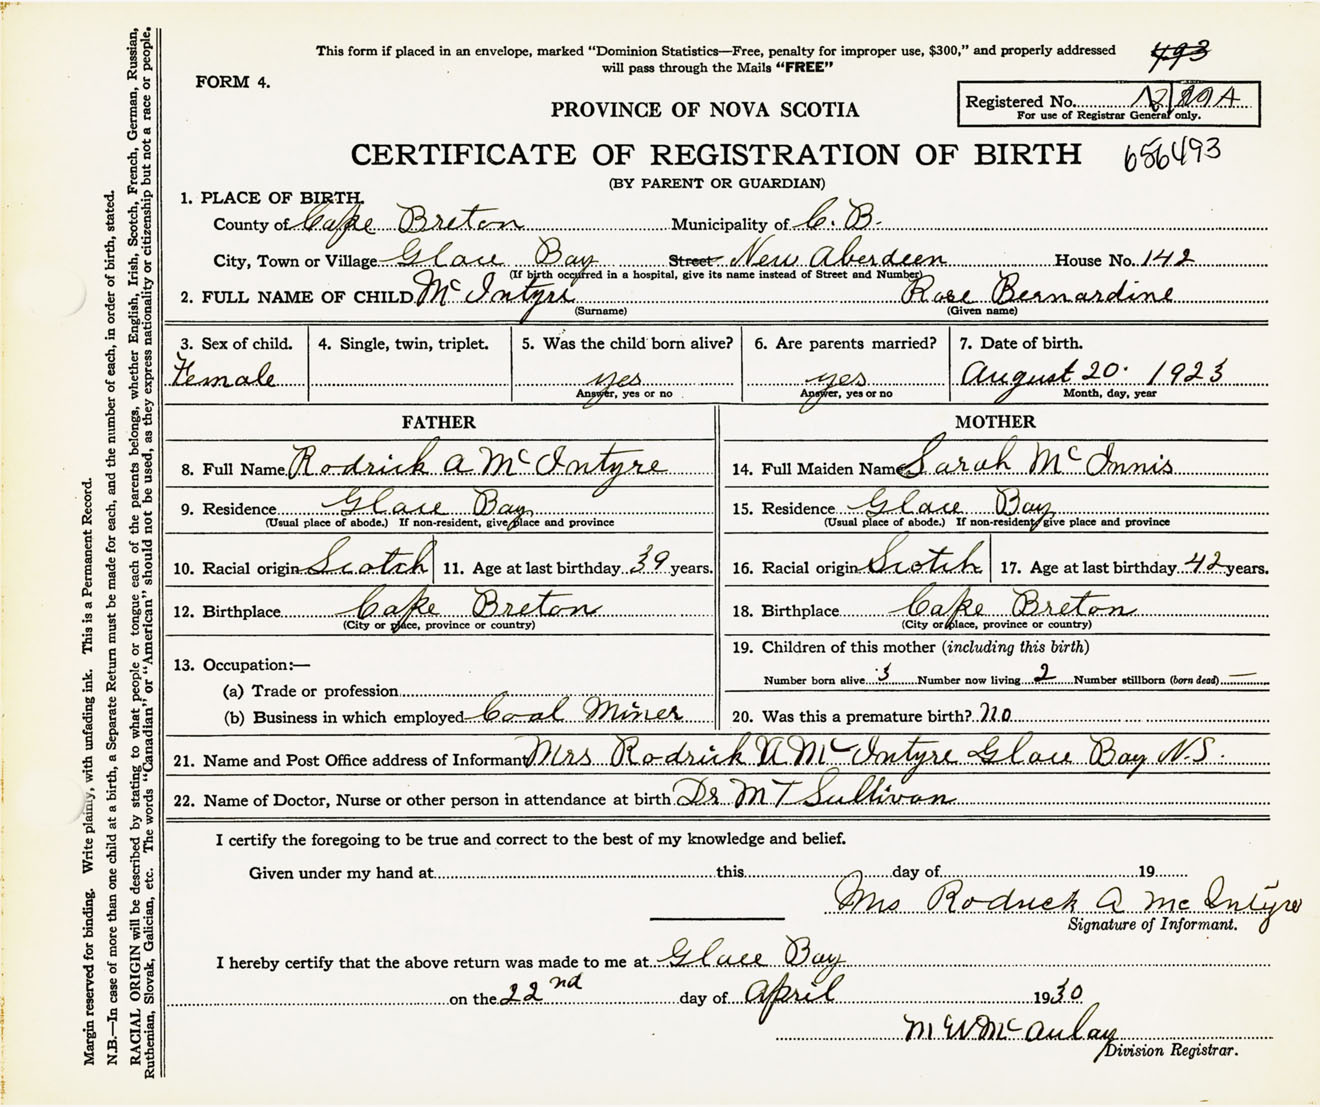 This form if placed in an envelope, marked "Dominion Statistics—Free, penalty for improper use, $300," and properly addressed
will pass through the Mails "FREE"
493
FORM 4.
PROVINCE OF NOVA SCOTIA
Registered No.
For use of Registrar General only.
CERTIFICATE OF REGISTRATION OF BIRTH
656493
(BY PARENT OR GUARDIAN)
1. PLACE OF BIRTH.
County of Cape Breton Municipality of C. B.
City, Town or Village Glace Bay Street New Aberdeen House No. 142
(If birth occurred in a hospital, give its name instead of Street and Number)
2. FULL NAME OF CHILD McIntyre Rose Bernardine
(Surname) (Given name)
3. Sex of child. 4. Single, twin, triplet. 5. Was the child born alive? 6. Are parents married? 7. Date of birth.
Female yes yes August 20. 1923
Answer, yes or no Answer, yes or no Month, day, year
FATHER
8. Full Name Rodrick A McIntyre
9. Residence Glace Bay
(Usual place of abode.) If non-resident, give place and province
10. Racial origin Scotch 11. Age at last birthday 39 years.
12. Birthplace Cape Breton
(City or place, province or country)
13. Occupation:—
(a) Trade or profession
(b) Business in which employed Coal Miner
MOTHER
14. Full Maiden Name Sarah McInnis
15. Residence Glace Bay
(Usual place of abode.) If non-resident, give place and province
16. Racial origin Scotch 17. Age at last birthday 42 years.
18. Birthplace Cape Breton
(City or place, province or country)
19. Children of this mother (including this birth)
Number born alive 3 Number now living 2 Number stillborn (born dead) —
20. Was this a premature birth? no
21. Name and Post Office address of Informant Mrs Rodrick A McIntyre Glace Bay N.S.
22. Name of Doctor, Nurse or other person in attendance at birth Dr M T Sullivan
I certify the foregoing to be true and correct to the best of my knowledge and belief.
Given under my hand at this day of 19
Mrs Rodrick A McIntyre
Signature of Informant.
I hereby certify that the above return was made to me at Glace Bay
on the 22nd day of April 1930
M W McAulay
Division Registrar.
Margin reserved for binding. Write plainly, with unfading ink. This is a Permanent Record.
N.B.—In case of more than one child at a birth, a Separate Return must be made for each, and the number of each, in order of birth, stated.
RACIAL ORIGIN will be described by stating to what people or tongue each of the parents belongs, whether English, Irish, Scotch, French, German, Russian,
Ruthenian, Slovak, Galician, etc. The words "Canadian" or "American" should not be used, as they express nationality or citizenship but not a race or people.